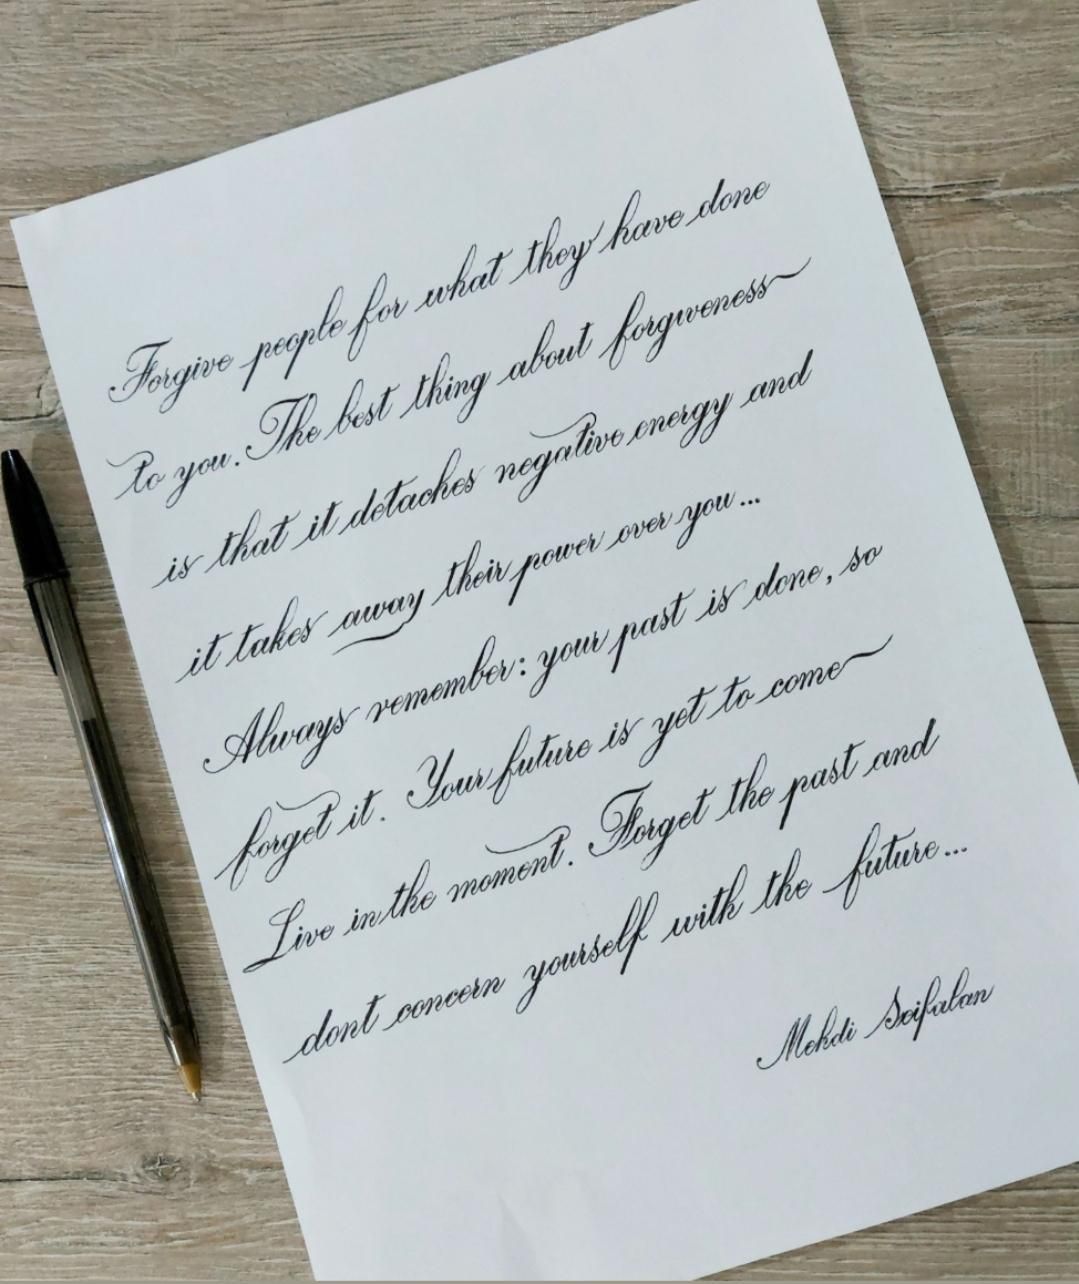 Forgive people for what they have done
to you. The best thing about forgiveness
is that it detaches negative energy and
it takes away their power over you...
Always remember: your past is done, so
forget it. Your future is yet to come
Live in the moment. Forget the past and
dont concern yourself with the future...
Mehdi Seifalan